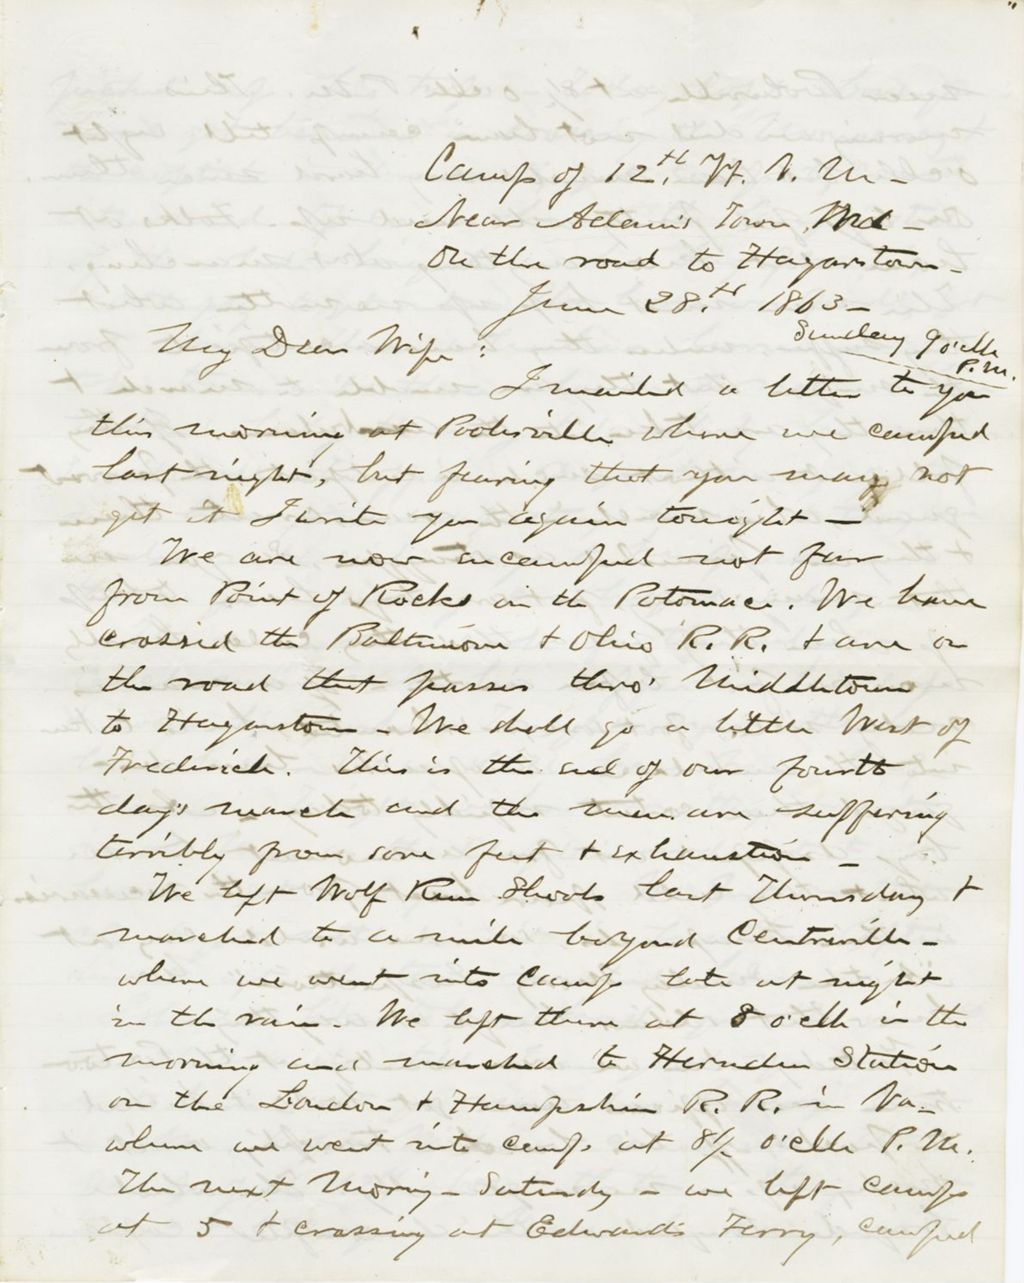 Camp of 12th Vt. V. M –
Near Adam's Town, Md –
On the road to Hagarstown –
June 28th 1863 –
Sunday 9 o'clk
P.M.
My Dear Wife:
I mailed a letter to you
this morning at Poolsville where we camped
last night, but fearing that you may not
get it I write you again tonight –
We are now encamped not far
from Point of Rocks on the Potomac. We have
crossed the Baltimore & Ohio R. R. & are on
the road that passes thro' Middletown
to Hagarstown – We shall go a little West of
Frederick. This is the end of our fourth
day's march and the men are suffering
terribly from sore feet & exhaustion –
We left Wolf Run Shoals last Thursday &
marched to a mile beyond Centreville –
where we went into Camp late at night
in the rain. We left there at 8 o'clk in the
morning and marched to Herndon Station
on the Loudon & Hampshire R. R. in Va –
where we went into camp at 8½ o'clk P. M.
The next Morning – Saturday – we left camp
at 5 & crossing at Edward's Ferry, camped